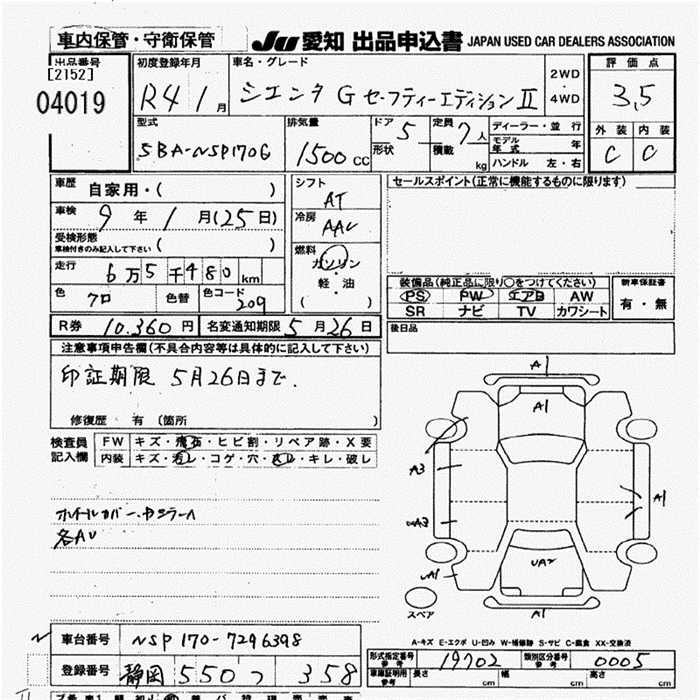 車内保管・守衛保管
JU 愛知 出品申込書 JAPAN USED CAR DEALERS ASSOCIATION
出品番号
[2152]
04019
初度登録年月
R4 1月
車名・グレード
シエンタ G セーフティーエディションⅡ
2WD
・
4WD
評価点
3,5
外装 内装
C C
型式
5BA-NSP170G
排気量
1500 CC
ドア 5
形状
定員 7人
積載 kg
ディーラー・並行
モデル年式 年
ハンドル 左・右
車歴 自家用・( )
車検 9年 1月 (25日)
受検形態
車検付きのみ記入して下さい ( )
走行 6万5千480km
色 クロ 色替 色コード 209
シフト AT
冷房 AAC
燃料
ガソリン
・
軽・油
( )
セールスポイント(正常に機能するものに限ります)
装備品(純正品に限り○をつけてください)
PS PW エアB AW
SR ナビ TV カワシート
新車保証書
有・無
R券 10.360円 名変通知期限 5月26日
後日品
注意事項申告欄(不具合内容等は具体的に記入して下さい)
印証期限 5月26日まで.
修復歴 有(箇所 )
検査員記入欄
FW キズ・飛石・ヒビ割・リペア跡・X要
内装 キズ・汚レ・コゲ・穴・スレ・キレ・破レ
ホイールカバー
各AU
A1
A1
A3
A1
UA2
A1
スペア
A-キズ E-エクボ U-凹み W-補修跡 S-サビ C-腐食 XX-交換済
車台番号 NSP170-7296398
登録番号 静岡 550つ 358
形式指定番号 参考 19702
類別区分番号 参考 0005
車庫証明用 参考 長さ cm 幅 cm 高さ cm